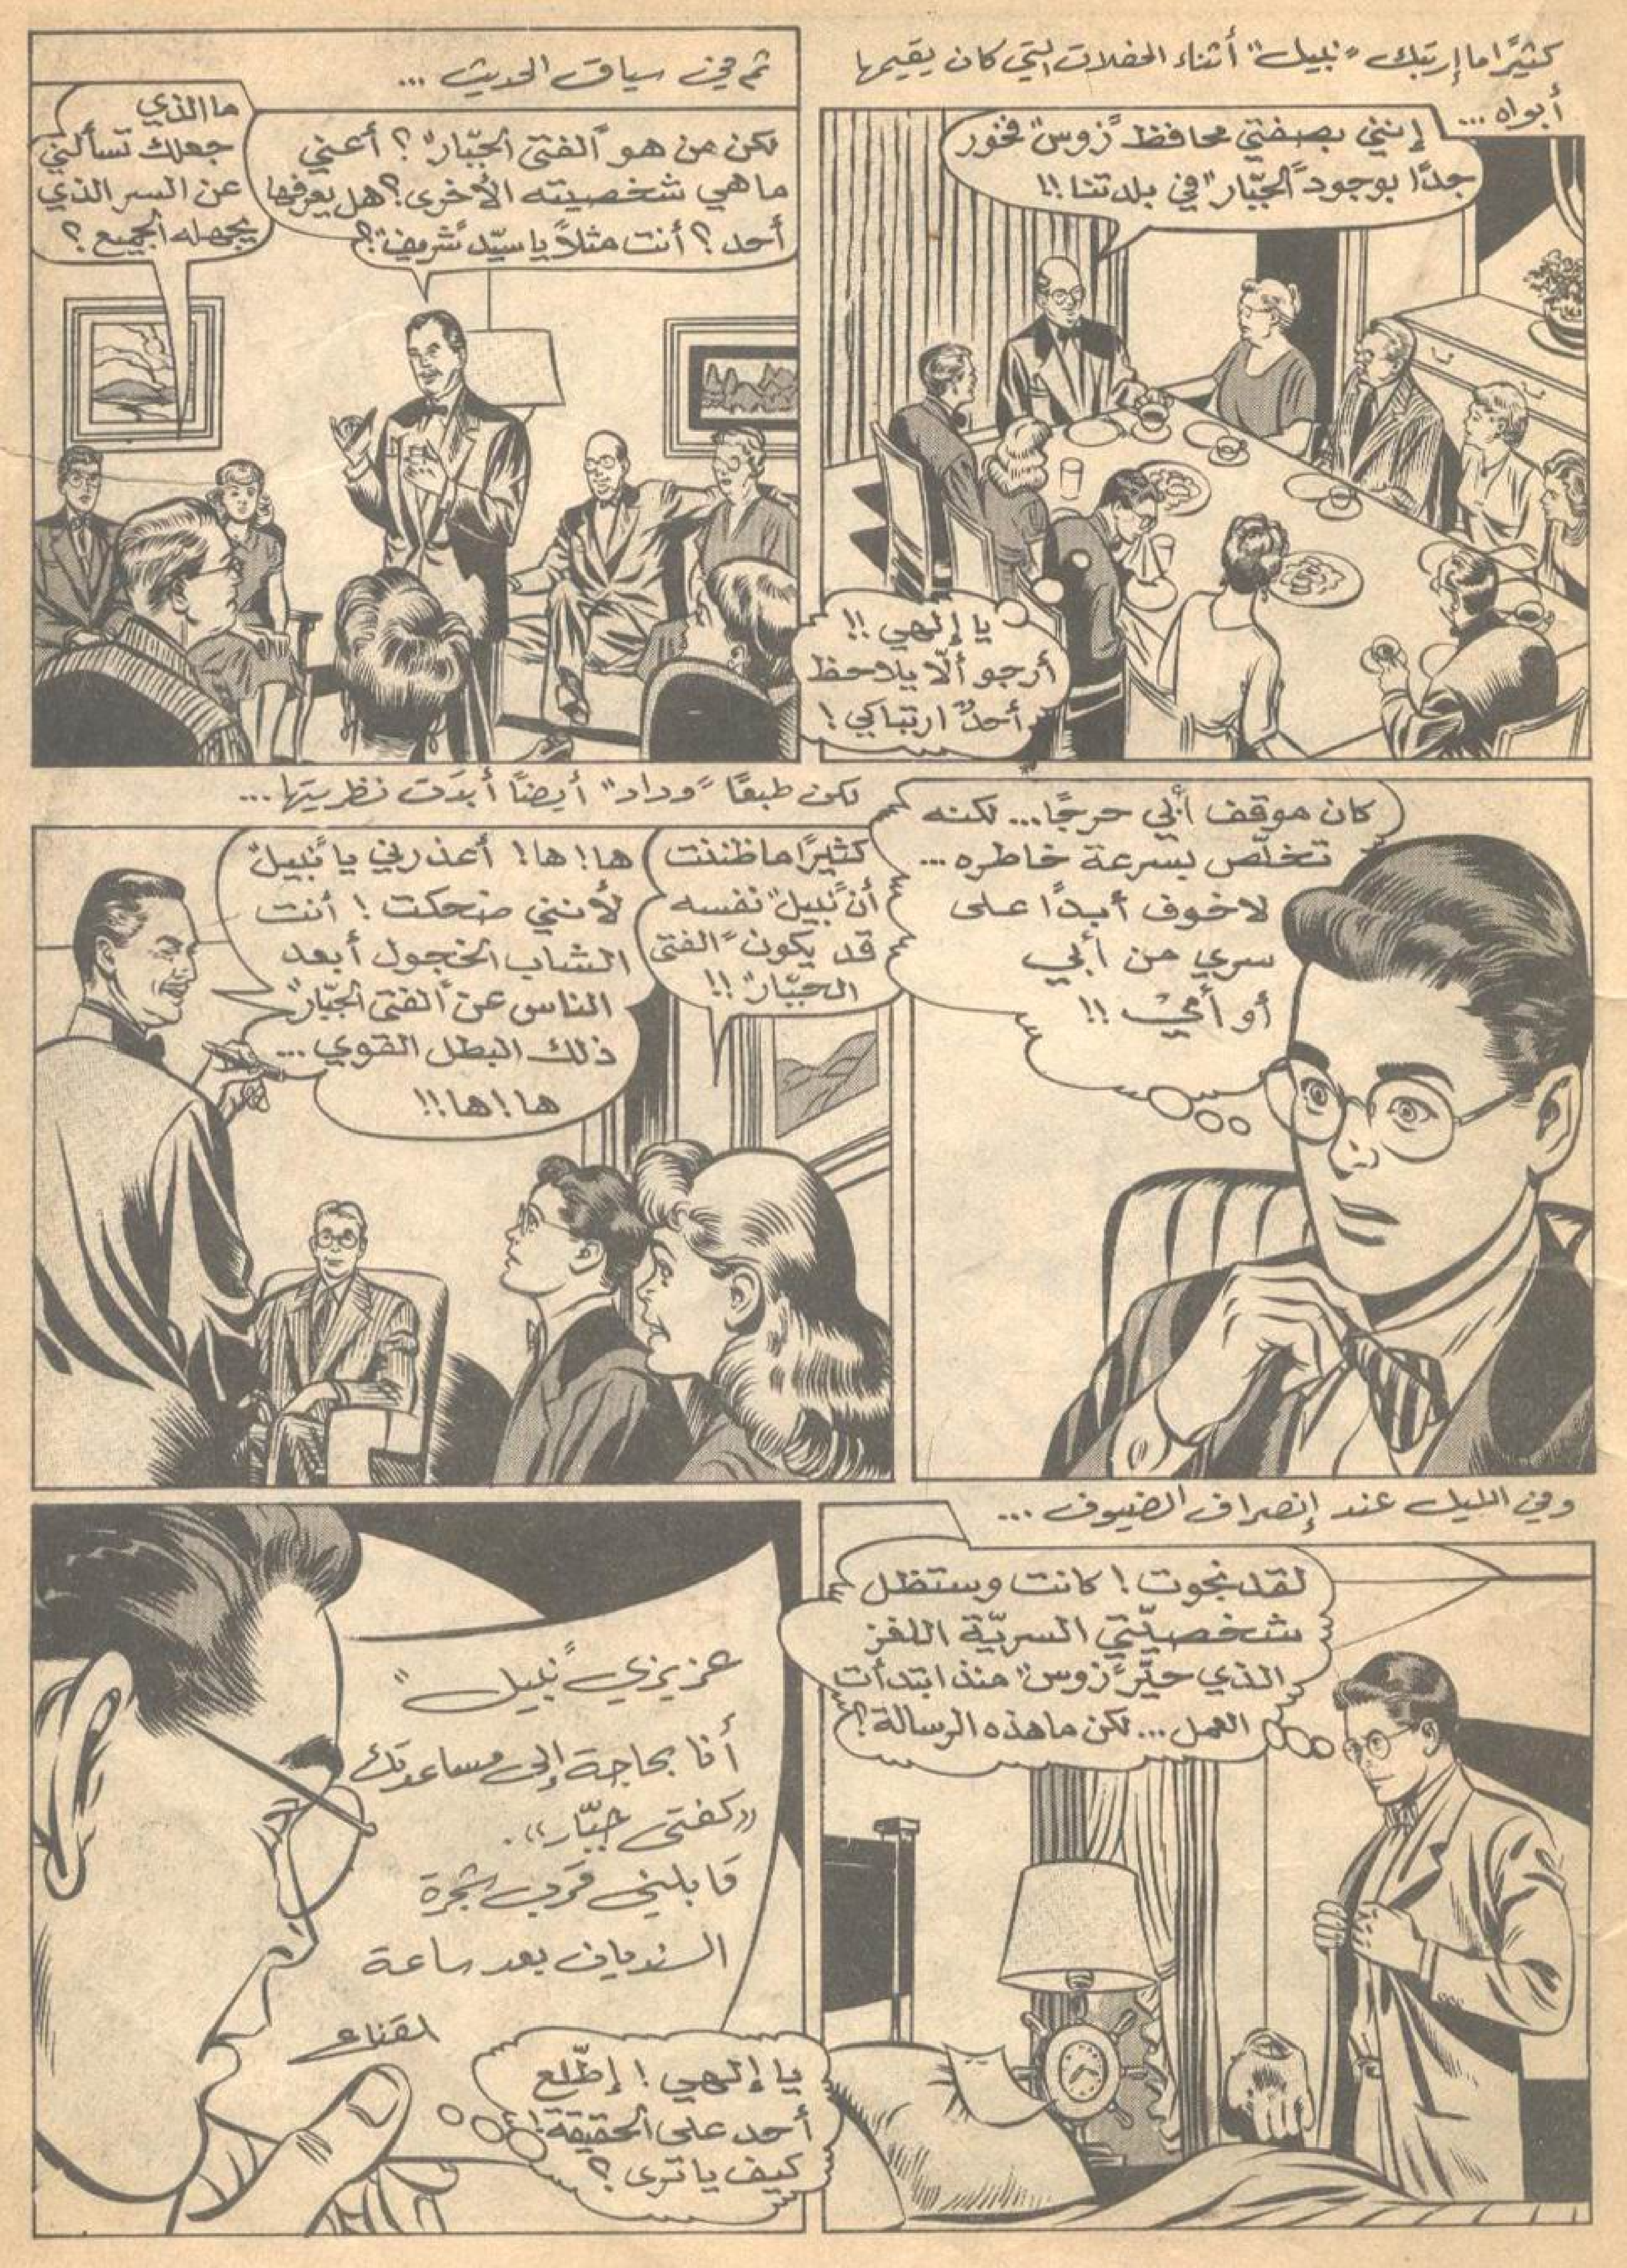 كثيرًا ما إرتبك "نبيل" أثناء الحفلات التي كان يقيمها
أبواه ...
إنني بصفتي محافظ "زوس" فخور
جدًا بوجود "الجبّار" في بلدتنا !!
يا إلهي !!
أرجو ألّا يلاحظ
أحدٌ ارتباكي !
ثم في سياق الحديث ...
لكن من هو "الفتى الجبّار" ؟ أعني
ما هي شخصيته الأخرى ؟ هل يعرفها
أحد ؟ أنت مثلاً يا سيّد "شريف" ؟
ما الذي
جعلك تسألني
عن السر الذي
يجهله الجميع ؟
كان موقف أبي حرجًا ... لكنه
تخلّص بسرعة خاطره ...
لا خوف أبدًا على
سري من أبي
أو أمي !!
لكن طبعًا "وداد" أيضًا أبدَت نظريتها ...
كثيرًا ما ظننت
أن "نبيل" نفسه
قد يكون "الفتى
الجبّار" !!
ها ! ها ! أعذرني يا "نبيل"
لأنني ضحكت ! أنت
الشاب الخجول أبعد
الناس عن "الفتى الجبّار"
ذلك البطل القوي ...
ها ! ها !!
وفي الليل عند إنصراف الضيوف ...
لقد نجوت ! كانت وستظل
شخصيّتي السريّة اللغز
الذي حيّر "زوس" منذ ابتدأت
العمل ... لكن ما هذه الرسالة ؟!
عزيزي "نبيل"
أنا بحاجة إلى مساعدتك
«كفتى جبّار».
قابلني قرب شجرة
السنديان بعد ساعة
القناع
يا إلهي ! إطّلع
أحد على الحقيقة !
كيف يا ترى ؟